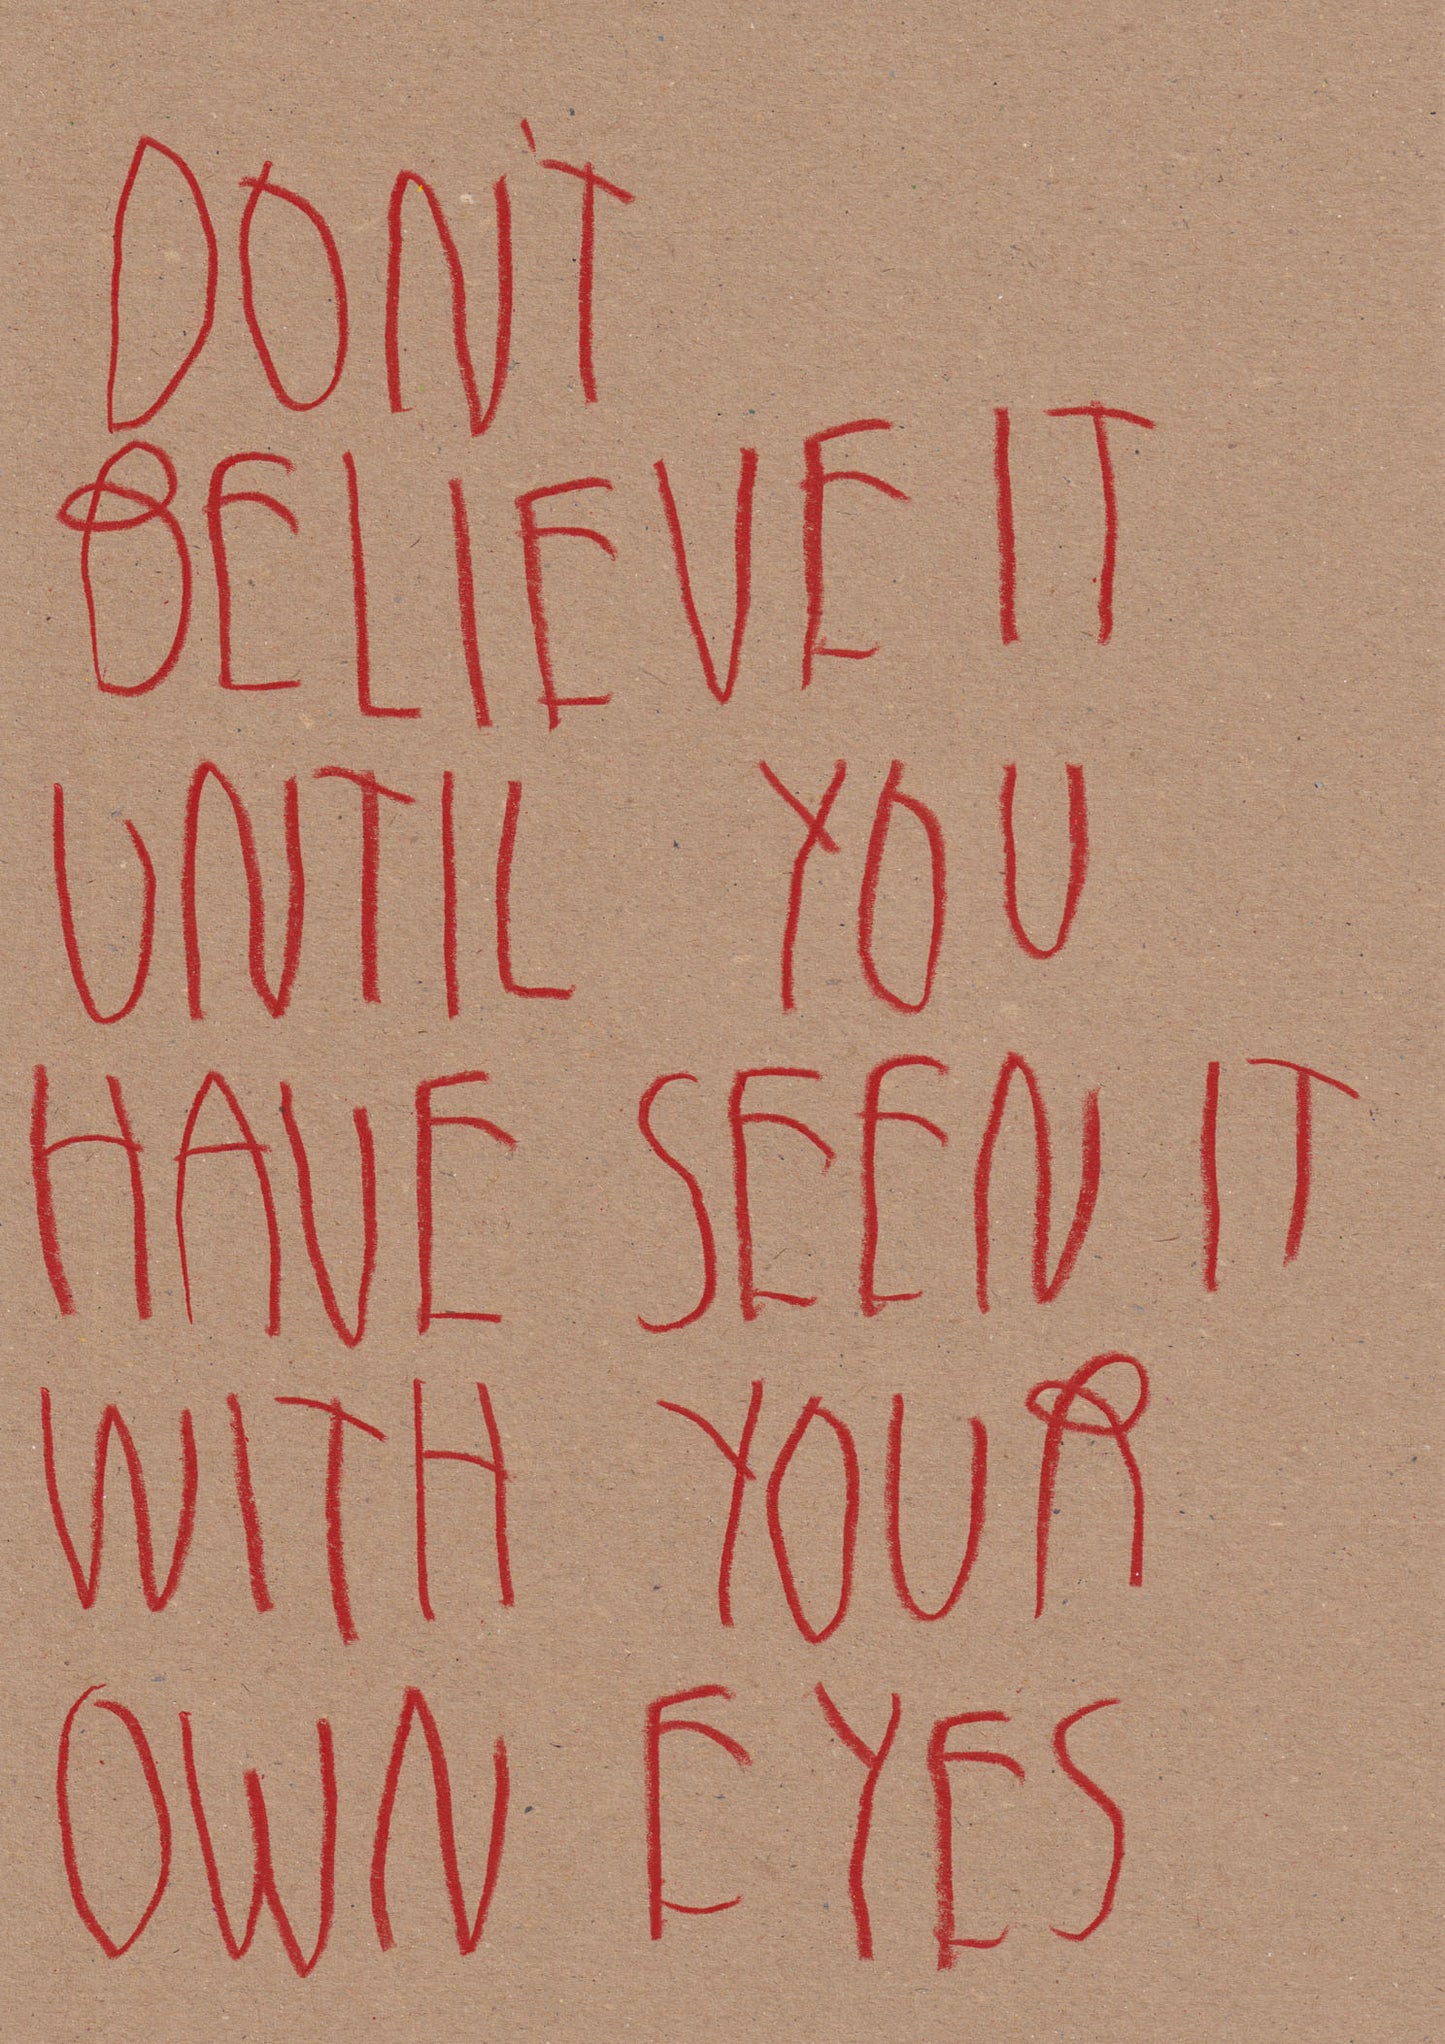 DON'T
BELIEVE IT
UNTIL YOU
HAVE SEEN IT
WITH YOUR
OWN EYES